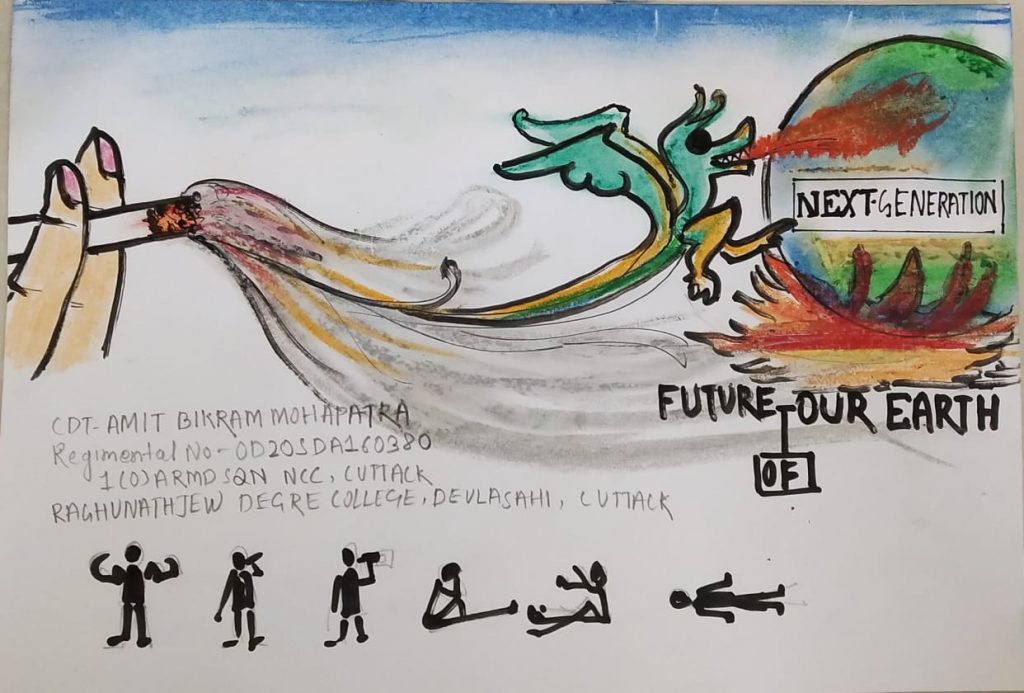 NEXT-GENERATION
FUTURE OF OUR EARTH
CDT- AMIT BIKRAM MOHAPATRA
Regimental No- OD20SDA160380
1(O) ARMD SQN NCC, CUTTACK
RAGHUNATHJEW DEGRE COLLEGE, DEULASAHI, CUTTACK